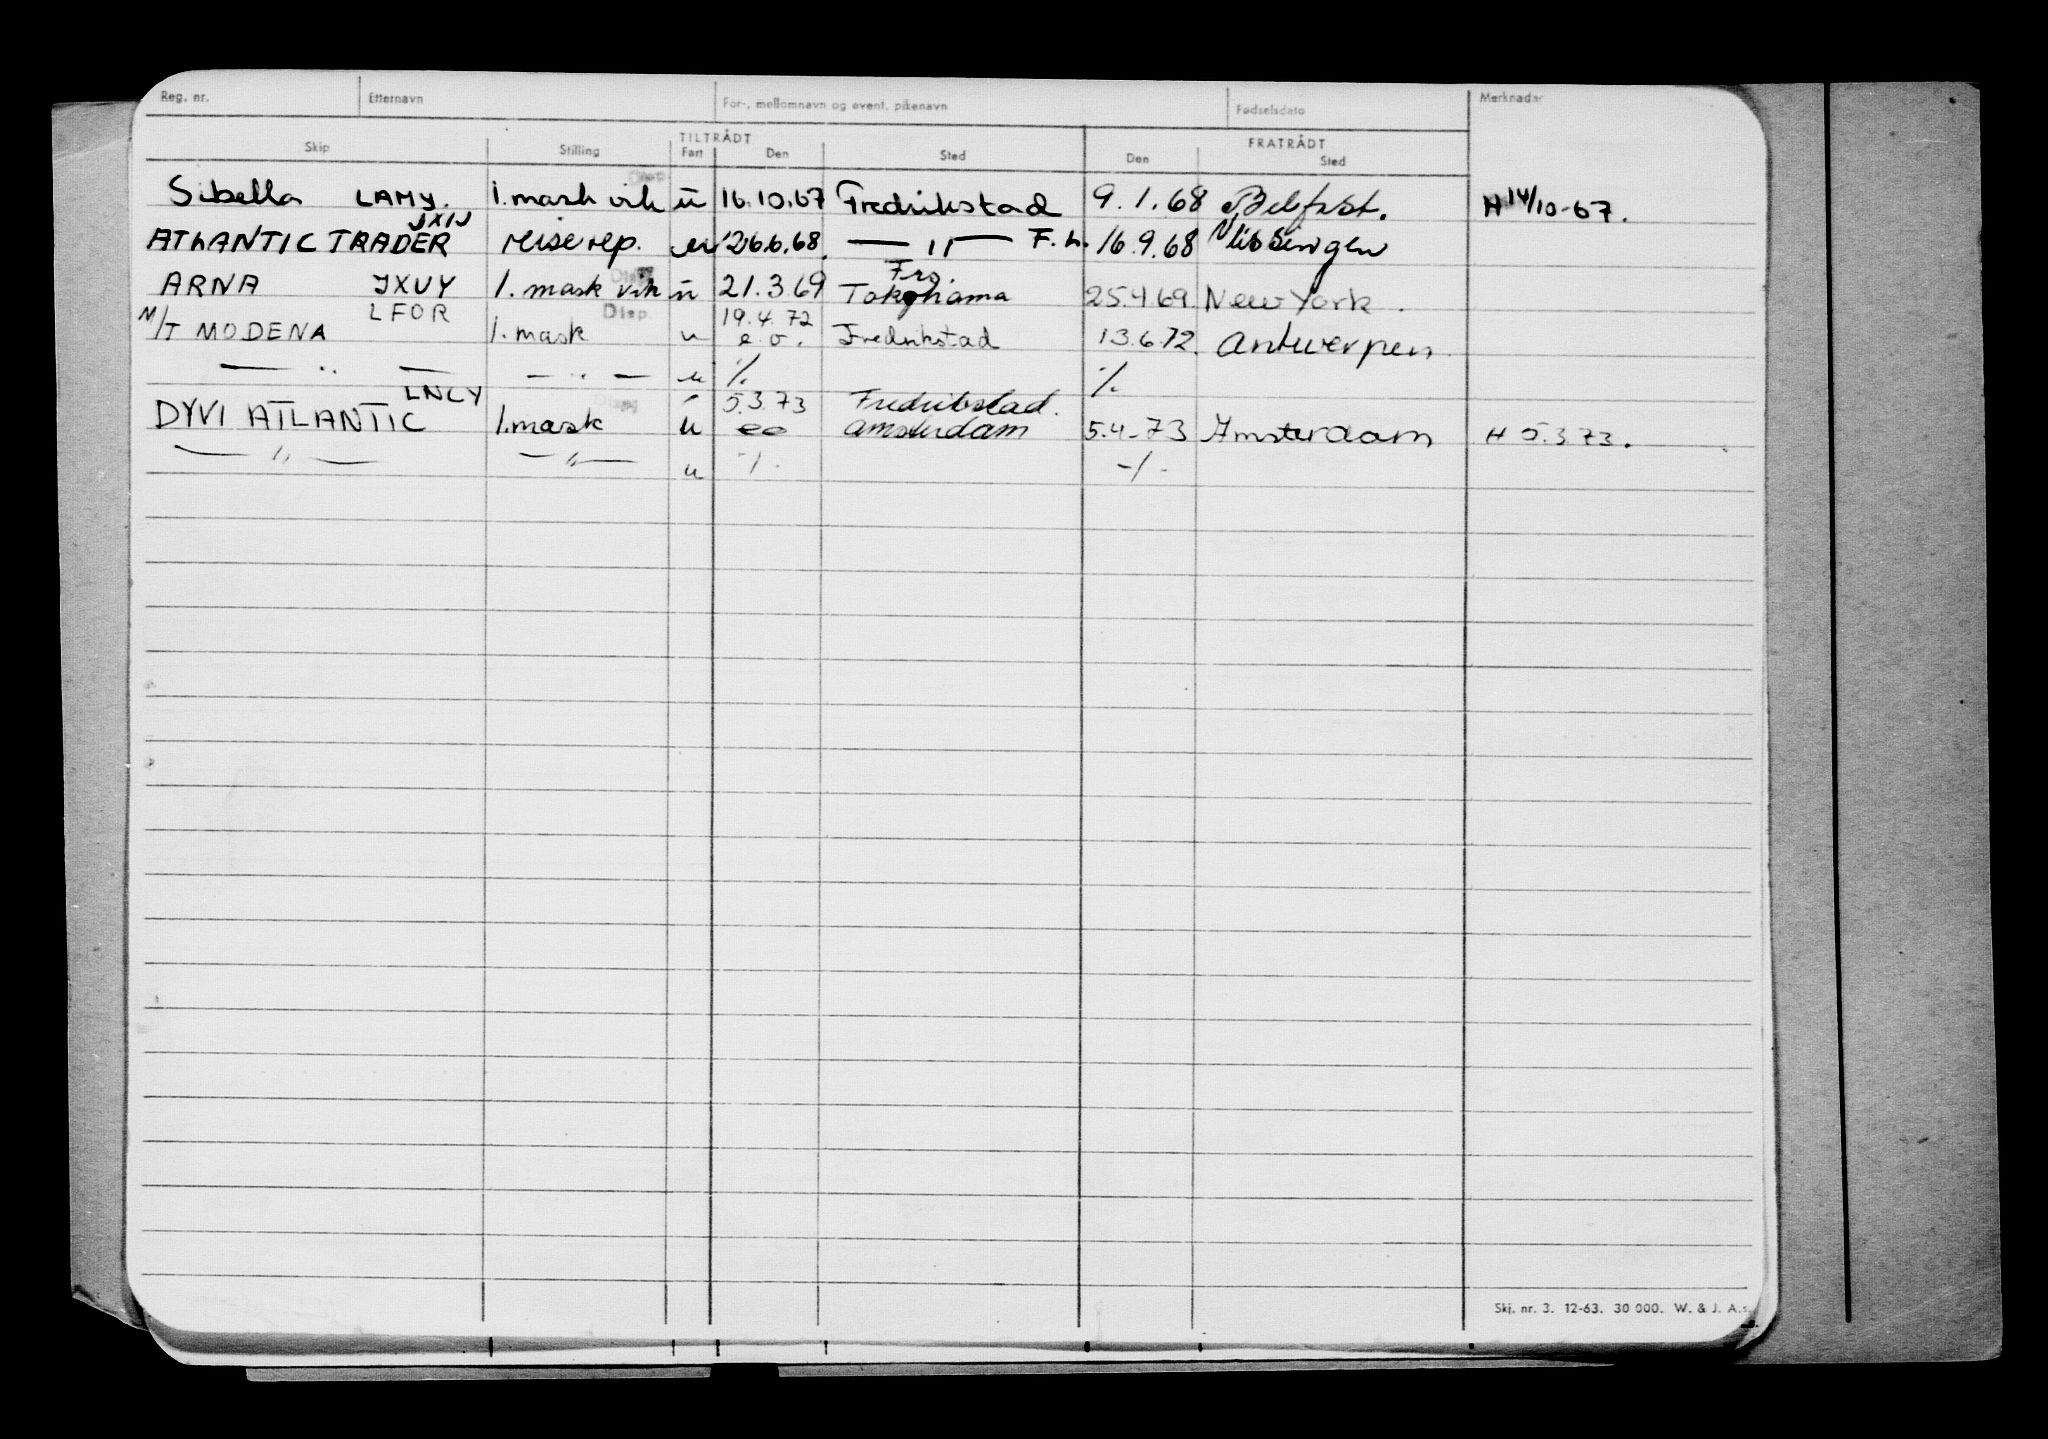 Reg. nr. Etternavn For-, mellomnavn og event. pikenavn Fødselsdato Merknader
TILTRÅDT FRATRÅDT
Skip Stilling Fart Den Sted Den Sted
Disp
Sibella LAMY. 1. mask vik ū 16.10.67 Fredrikstad 9.1.68 Belfast. H 14/10-67.
JXIJ
ATLANTIC TRADER reiserep. u 26.6.68. — " — F.h. 16.9.68 Vlissingen
Disp Frs.
ARNA JXUY 1. mask vik ū 21.3 69 Yokohama 25.4.69. New York.
LFOR Disp 19.4.72
M/T MODENA 1. mask u e.o. Fredrikstad 13.6.72. Antwerpen.
— " — — " — u ./. ./.
LNCY Disp 5.3.73 Fredrikstad.
DYVI ATLANTIC 1. mask u eo Amsterdam 5.4-73 Amsterdam H 5.3 73.
— " — — " — u -/- -/-
Skj. nr. 3. 12-63. 30 000. W. & J. A.s.